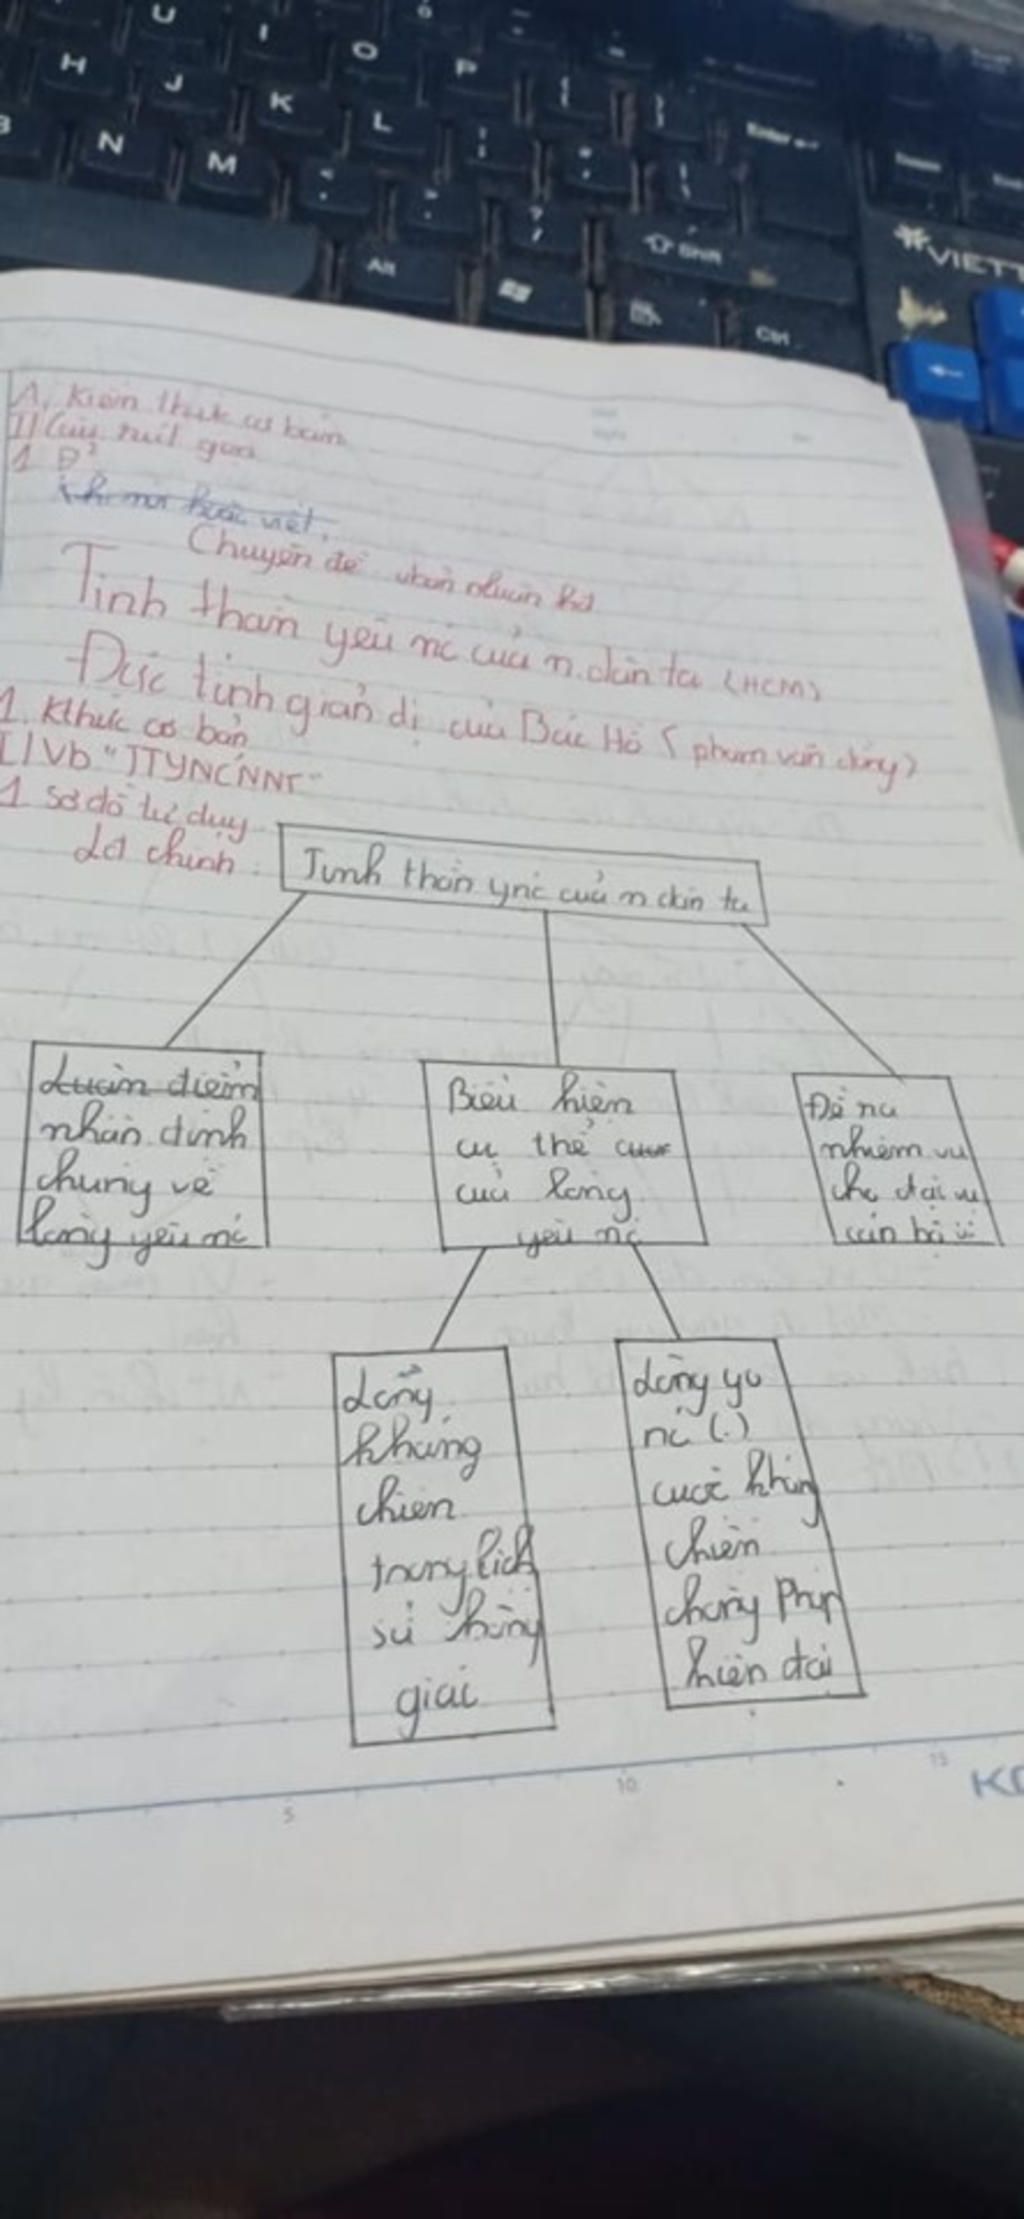 U I O P
H J K L
B N M
Enter
Shift
Alt
Ctrl
VIETT
A, Kiến thức cơ bản
I) Câu rút gọn
1
Chuyên đề văn
Tinh thần yêu nc của n.dân ta (HCM)
Đức tính giản dị của Bác Hồ ( phạm văn đồng)
1. Kthức cơ bản
I/ Vb "TTYNCNNT"
1 Sơ đồ tư duy
Lđ chính :
Tinh thần ync của n dân ta
Luận điểm
nhận định
chung về
lòng yêu nc
Biểu hiện
cụ thể
của lòng
yêu nc
Đề ra
nhiệm vụ
cán bộ
Lòng
kháng
chiến
trong lịch
sử
Lòng yê
nc (.)
cuộc kháng
chiến
chống Pháp
hiện đại
5 10 15